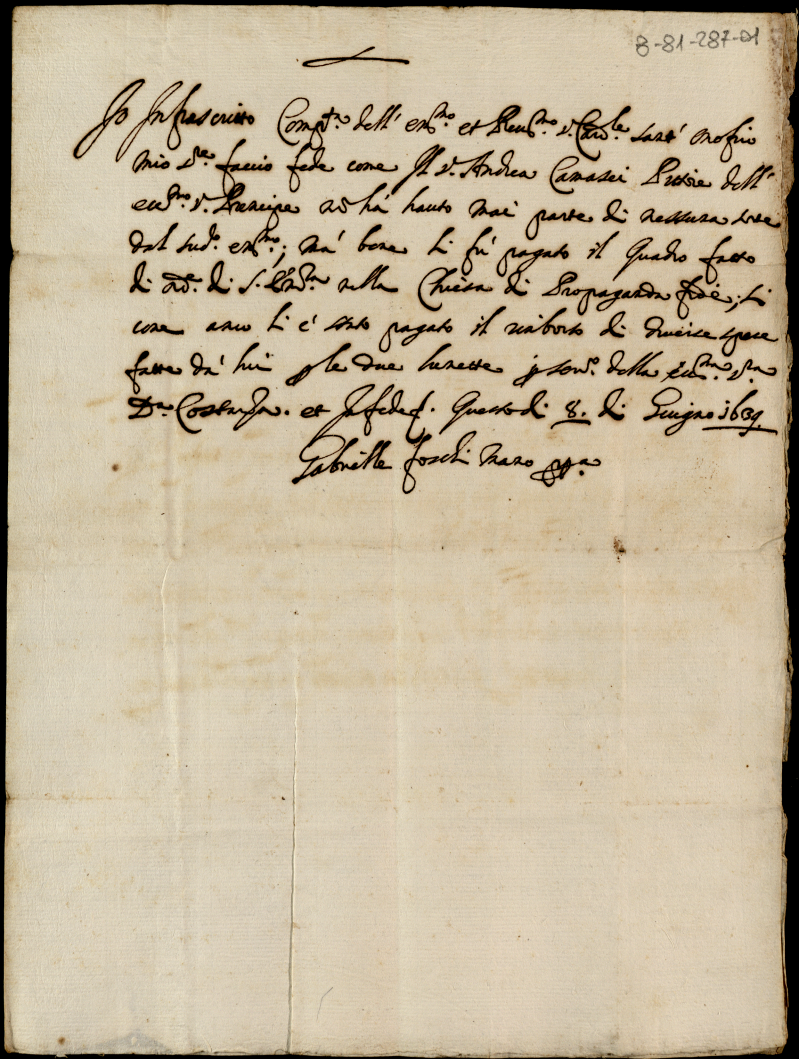 8-81-287-01
Jo Infrascritto Comp.^ta dell' em.^mo et Reu.^mo s.^r Card.^le sant' nofrio
mio s.^re faccio fede come Il s.^r Andrea Camassei Pittore dell'
ecc.^mo s.^r Prencipe nõ há hauto mai parte di nessuna sorte
dal sud.^o em.^mo; má bene li fú pagato il quadro fatto
di di S. nella Chiesa di Propaganda fide; si
come anco li é stato pagato il rimborso di diuerse spese
fatte dá lui p le due lunette p seru.^o della ecc.^ma s.^ra
D.^na Costanza. et In fede. Questo di 8. di Giugno 1639
Gabrielle foschi mano pp.^a